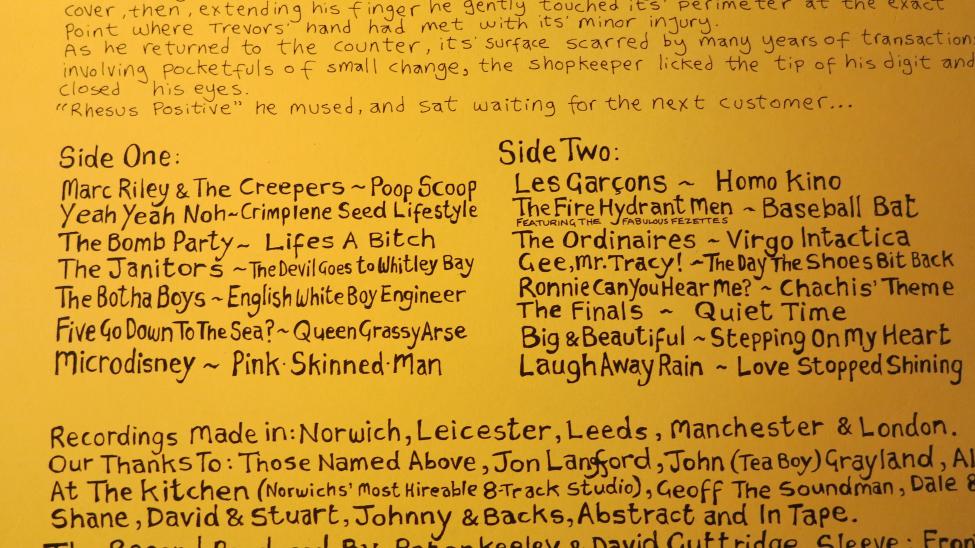 cover, then, extending his finger he gently touched it's' perimeter at the exact
Point where Trevors' hand had met with its' minor injury.
As he returned to the counter, it's' surface scarred by many years of transaction
involving pocketfuls of small change, the shopkeeper licked the tip of his digit and
closed his eyes.
"Rhesus Positive" he mused, and sat waiting for the next customer...
Side One:
Marc Riley & The Creepers ~ Poop Scoop
Yeah Yeah Noh ~ Crimplene Seed Lifestyle
The Bomb Party ~ Lifes A Bitch
The Janitors ~ The Devil Goes to Whitley Bay
The Botha Boys ~ English White Boy Engineer
Five Go Down To The Sea? ~ Queen Grassy Arse
Microdisney ~ Pink·Skinned·Man
Side Two:
Les Garçons ~ Homo Kino
The Fire Hydrant Men ~ Baseball Bat
FEATURING THE FABULOUS FEZETTES
The Ordinaires ~ Virgo Intactica
Gee, Mr. Tracy! ~ The Day The Shoes Bit Back
Ronnie Can You Hear Me? ~ Chachis' Theme
The Finals ~ Quiet Time
Big & Beautiful ~ Stepping On My Heart
Laugh Away Rain ~ Love Stopped Shining
Recordings Made in: Norwich, Leicester, Leeds, Manchester & London.
Our Thanks To: Those Named Above, Jon Langford, John (Tea Boy) Grayland, Al
At The Kitchen (Norwichs' Most Hireable 8-Track Studio), Geoff The Soundman, Dale &
Shane, David & Stuart, Johnny & Backs, Abstract and In Tape.
The Record By & David Guttridge. Sleeve: Fron